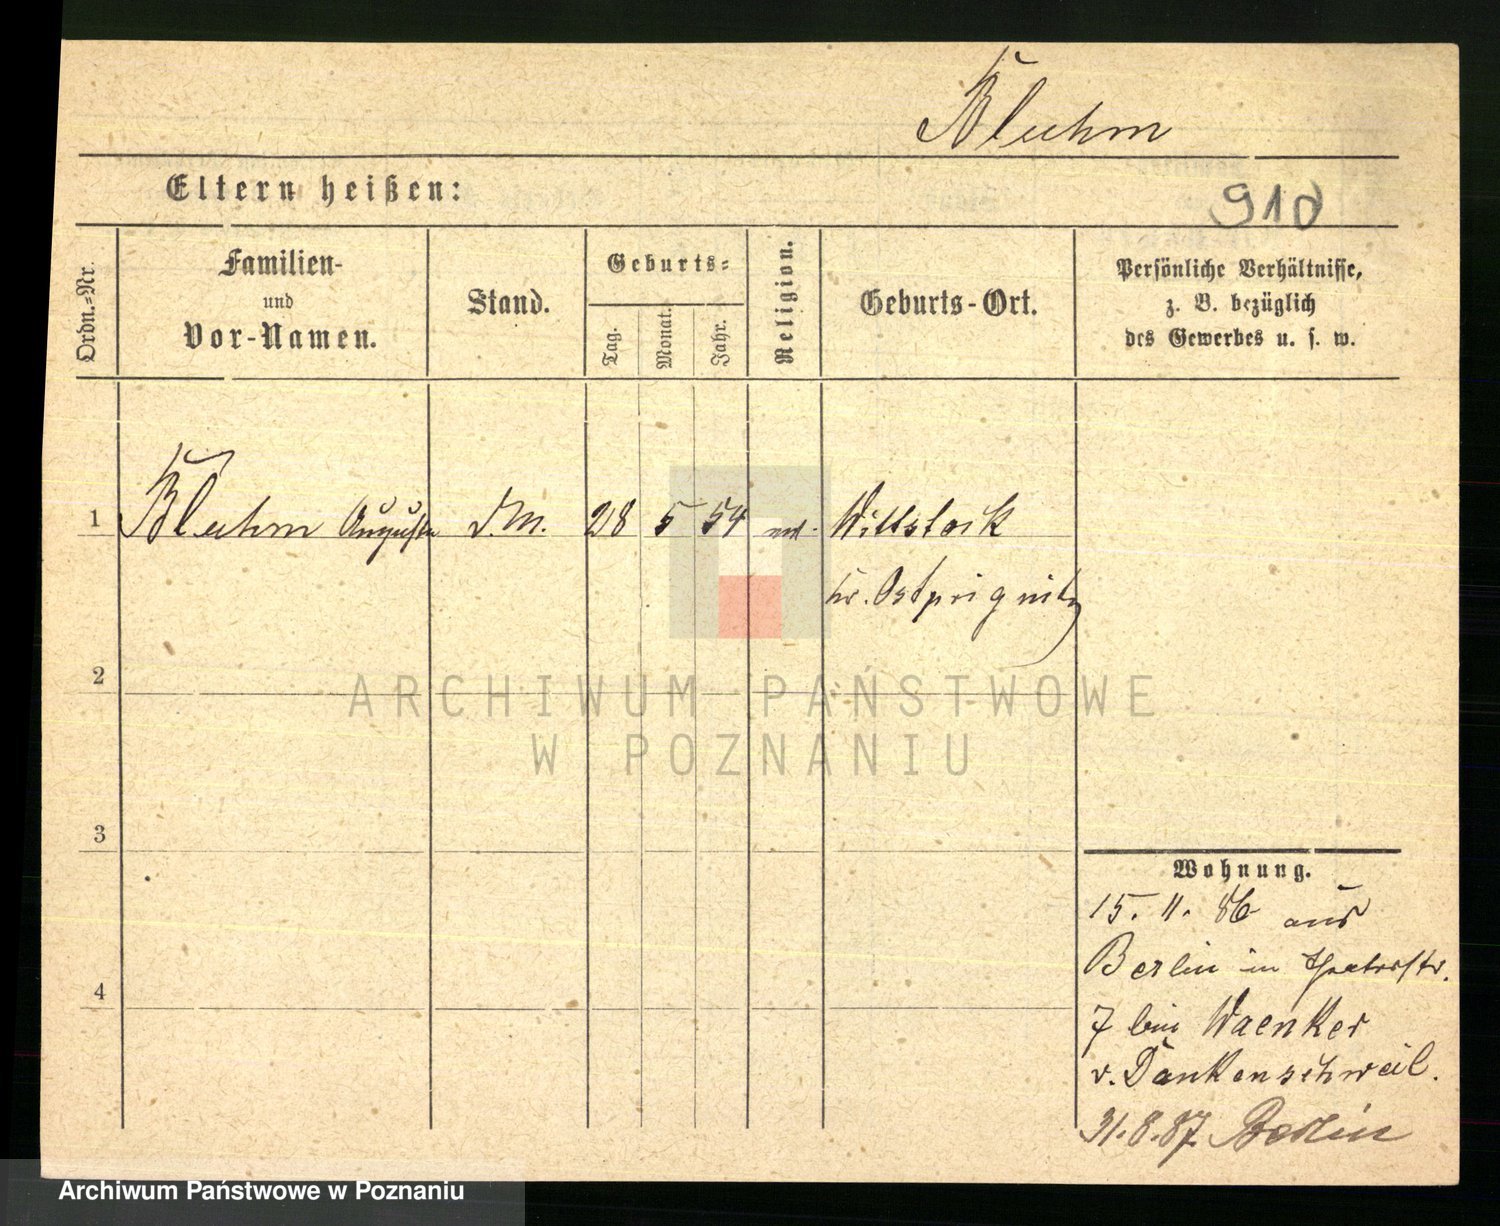 Bluhm
Eltern heißen:
910
Ordn.-Nr.
Familien-
und
Vor-Namen.
Stand.
Geburts-
Tag.
Monat.
Jahr.
Religion.
Geburts-Ort.
Persönliche Verhältnisse,
z. B. bezüglich
des Gewerbes u. s. w.
1 Bluhm Auguste D.M. 28 5 54 Wittstock
Kr. Ostprignitz
2
ARCHIWUM PAŃSTWOWE
W POZNANIU
3
Wohnung.
15. 11. 86 aus
Berlin in Theaterstr.
4
7 bei Waenker
v. Dankenschweil.
31.8.87 Berlin
Archiwum Państwowe w Poznaniu